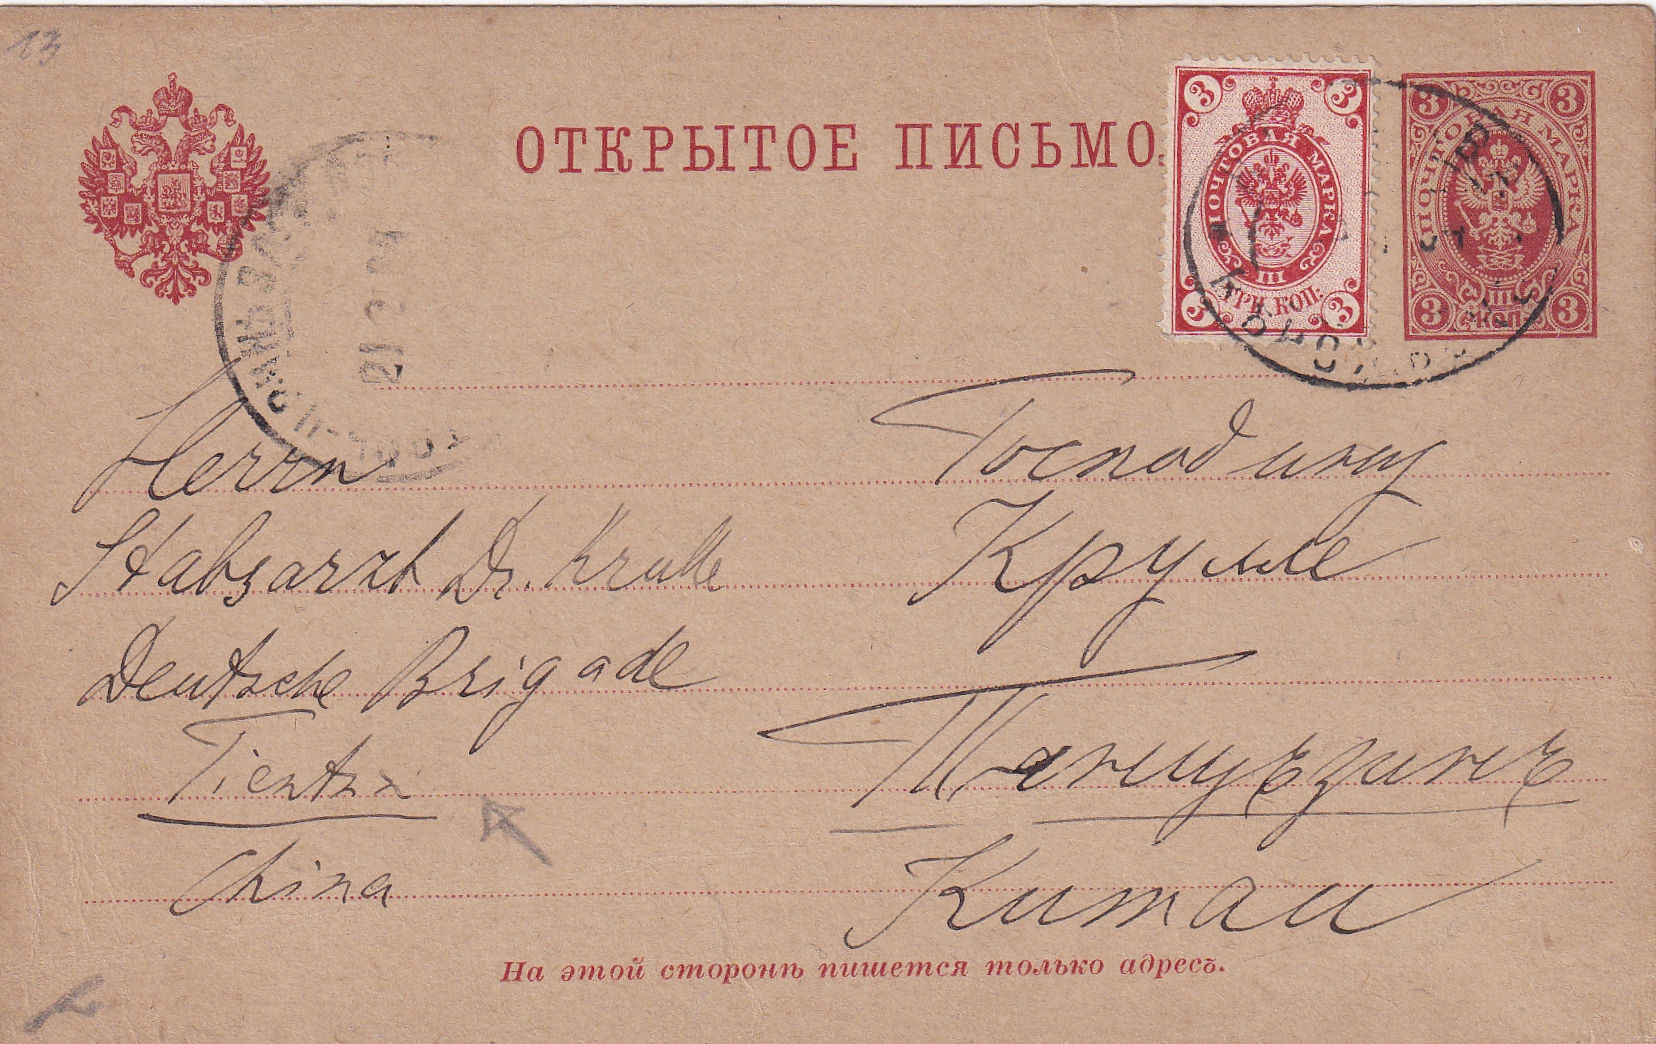 13
ОТКРЫТОЕ ПИСЬМО.
3 3
ПОЧТОВАЯ МАРКА
III
ТРИ КОП.
3 3
3 3
ПОЧТОВАЯ МАРКА
III
КОП.
3 3
Herrn
Stabsarzt Dr. Krulle
Deutsche Brigade
Tientsin
China
Господину
Крулле
Китаи
На этой сторонѣ пишется только адресъ.